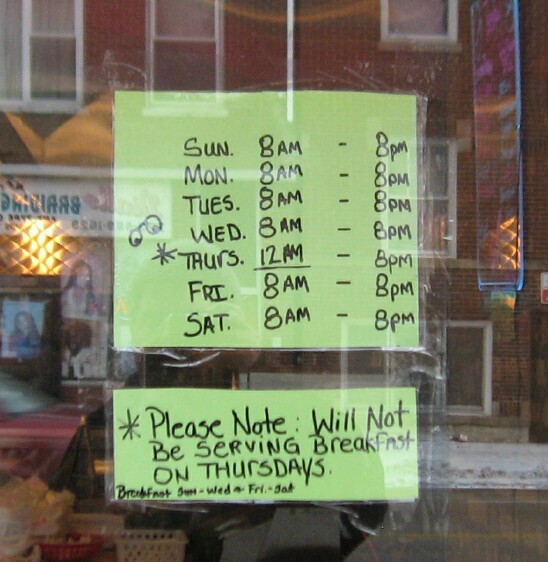 SUN. 8AM - 8pm
MON. 8AM - 8pm
TUES. 8AM - 8pm
WED. 8AM - 8pm
*THURS. 12AM - 8pm
FRI. 8AM - 8pm
SAT. 8AM - 8pm
* Please Note: Will Not
Be SERVING BreakFast
ON THURSDAYS.
BreakFast Sun-Wed Fri.-Sat
BRAIDING